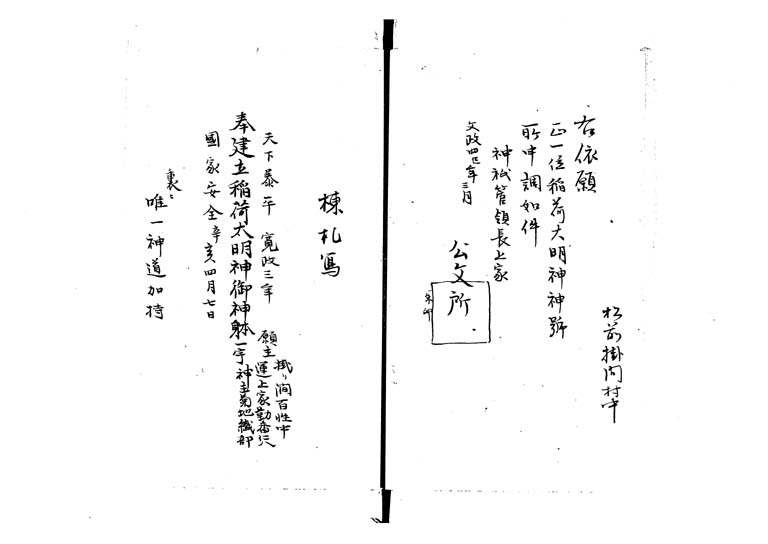 松前掛澗村中
右依願
正一位稲荷大明神神號
所申調如件
神祇管領長上家
文政四巳年三月
公文所
朱印
棟札寫
天下泰平 寛政三年
奉建立稲荷大明神御神躰一宇
國家安全 辛亥四月七日
掛リ澗百姓中
願主運上家勤番
神主菊地織部
裏ニ
唯一神道加持